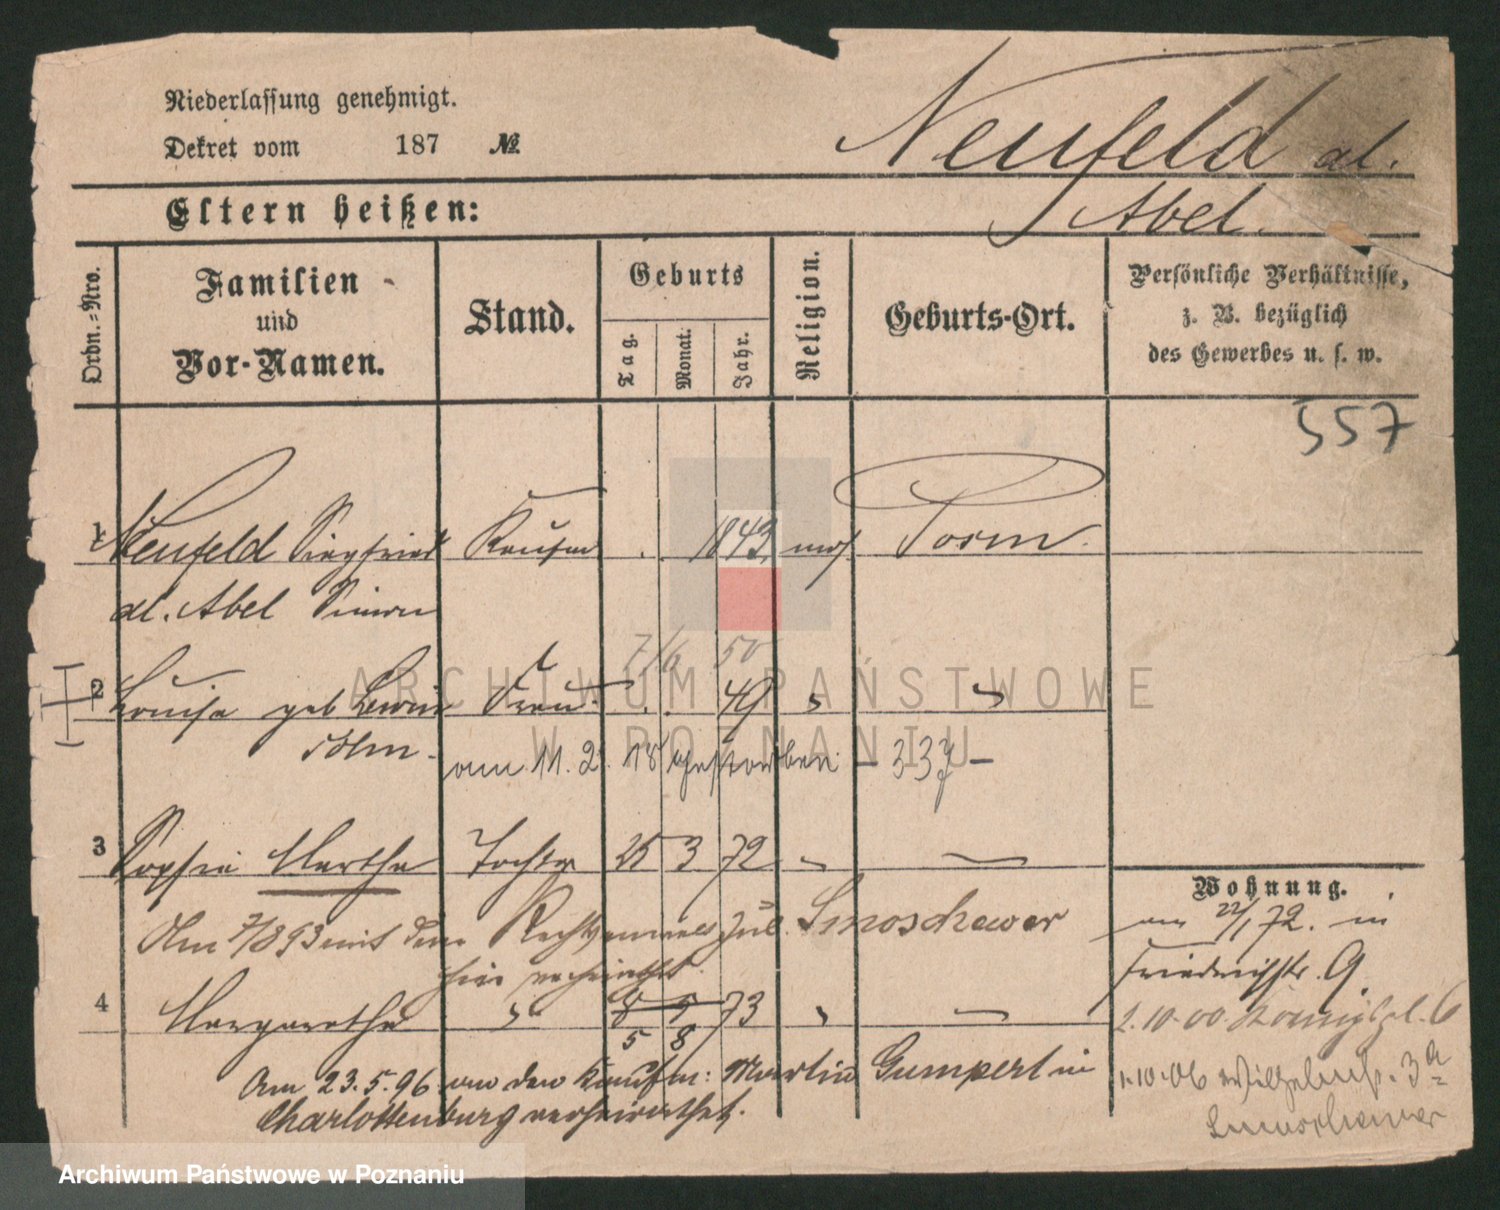 Niederlassung genehmigt.
Dekret vom 187 №
Neufeld al.
Abel.
Eltern heißen:
Ordn.=Nro.
Familien
und
Vor-Namen.
Stand.
Geburts
Tag.
Monat.
Jahr.
Religion.
Geburts-Ort.
Persönliche Verhältnisse,
z. B. bezüglich
des Gewerbes u. s. w.
557
1 Neufeld Siegfried Kaufm . . 1843 mos. Posen.
al. Abel Simon
7/6 50
2 Louise geb Lewin Frau . . 49 " "
am 11. 2. 18 gestorben - 337 -
3 Sophie Martha Tochter 25 3 72 " —
Wohnung.
Am 7/8 93 mit dem Rechtsanwalt Jul. Smoschewer
hier verheirathet.
am 22/1 72. in
Friedrichstr. 9.
4 Margarethe " 8 5 73 " —
5 8
2.10.00. Königspl. 6
Am 23.5.96 an den Kaufm: Martin Gumpert in
Charlottenburg verheirathet.
1.10.06 Wilhelmstr. 3a
Smoschewer
ARCHIWUM PAŃSTWOWE
W POZNANIU
Archiwum Państwowe w Poznaniu